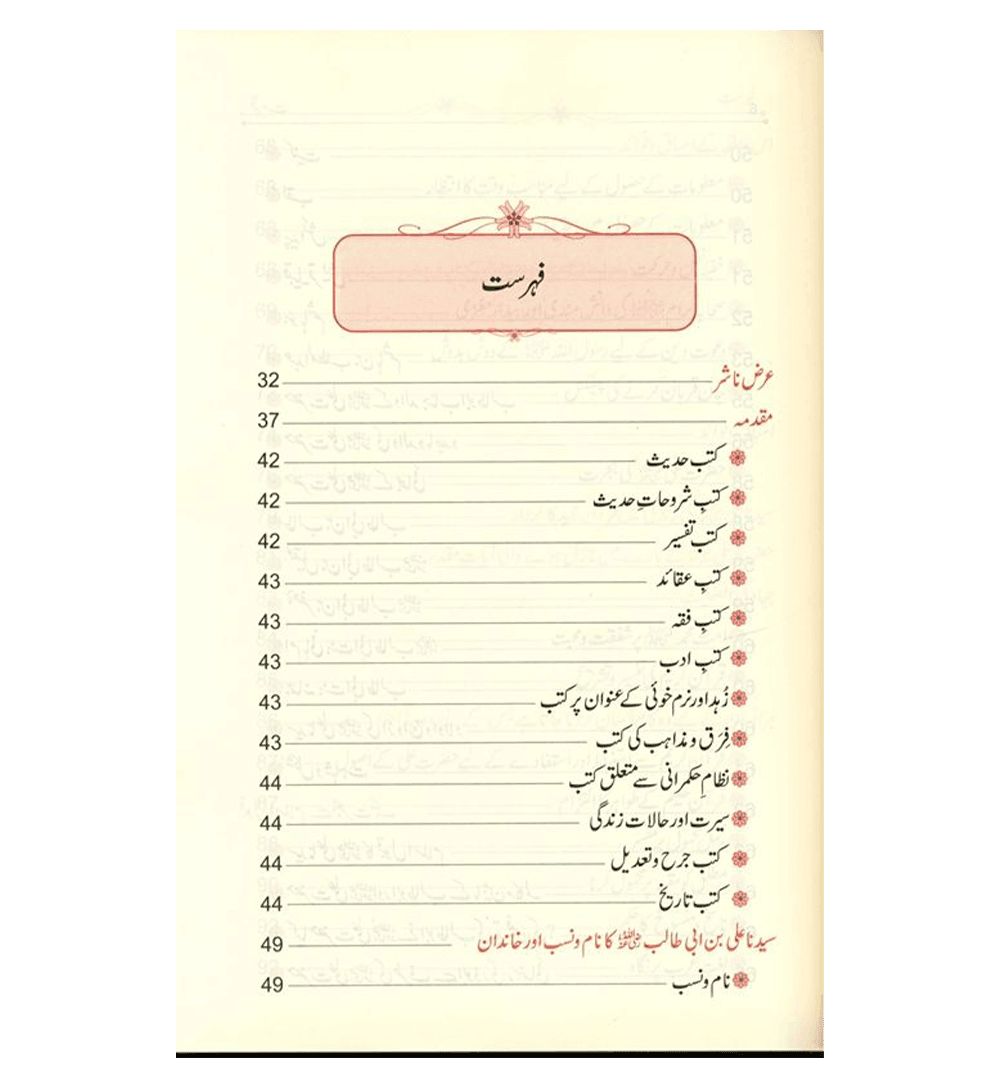 فہرست
عرض ناشر 32
مقدمہ 37
کتب حدیث 42
کتبِ شروحاتِ حدیث 42
کتب تفسیر 42
کتبِ عقائد 43
کتبِ فقہ 43
کتبِ ادب 43
زُہد اور نرم خوئی کے عنوان پر کتب 43
فِرَق و مذاہب کی کتب 43
نظامِ حکمرانی سے متعلق کتب 44
سیرت اور حالات زندگی 44
کتب جرح و تعدیل 44
کتب تاریخ 44
سیدنا علی بن ابی طالب رضی اللہ عنہ کا نام و نسب اور خاندان 49
نام و نسب 49